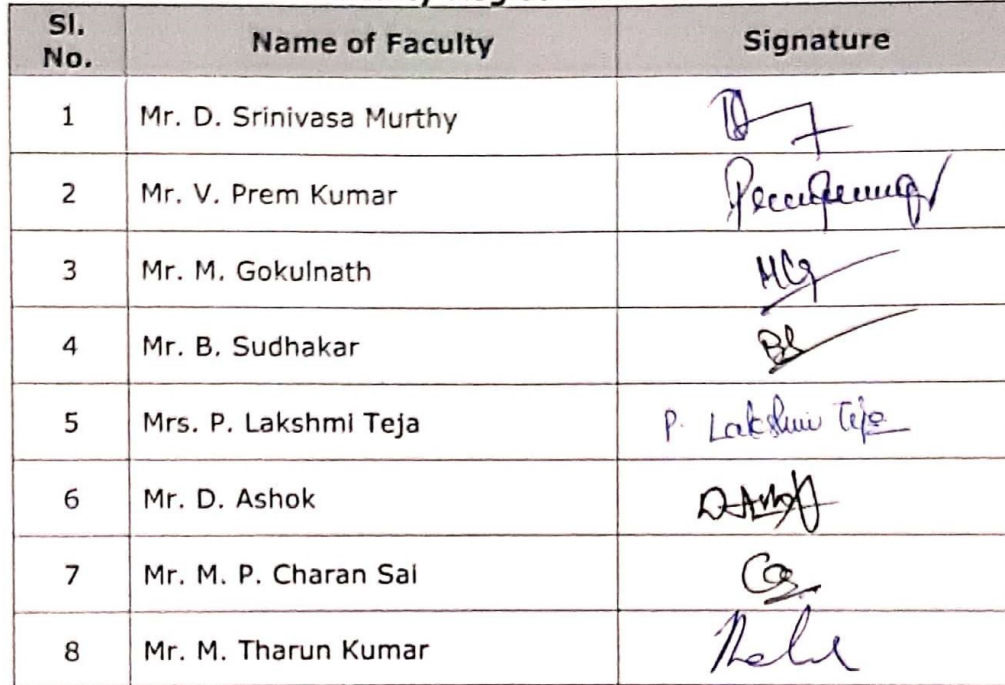 Sl. No. Name of Faculty Signature
1 Mr. D. Srinivasa Murthy
2 Mr. V. Prem Kumar
3 Mr. M. Gokulnath
4 Mr. B. Sudhakar
5 Mrs. P. Lakshmi Teja P. Lakshmi Teja
6 Mr. D. Ashok D. Ashok
7 Mr. M. P. Charan Sai
8 Mr. M. Tharun Kumar